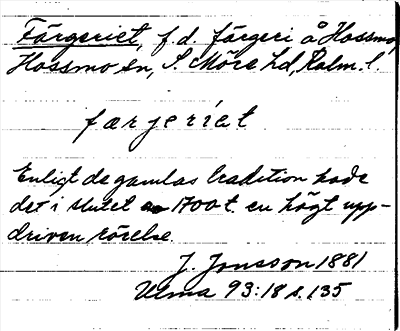 Färgeriet, f.d. färgeri å Hossmo,
Hossmo sn, S. Möre hd, Kalm. l.
færjeriet
Enligt de gamlas tradition hade
det i slutet av 1700t. en högt upp-
driven rörelse.
J. Jonsson 1881
Ulma 93:18 s. 135